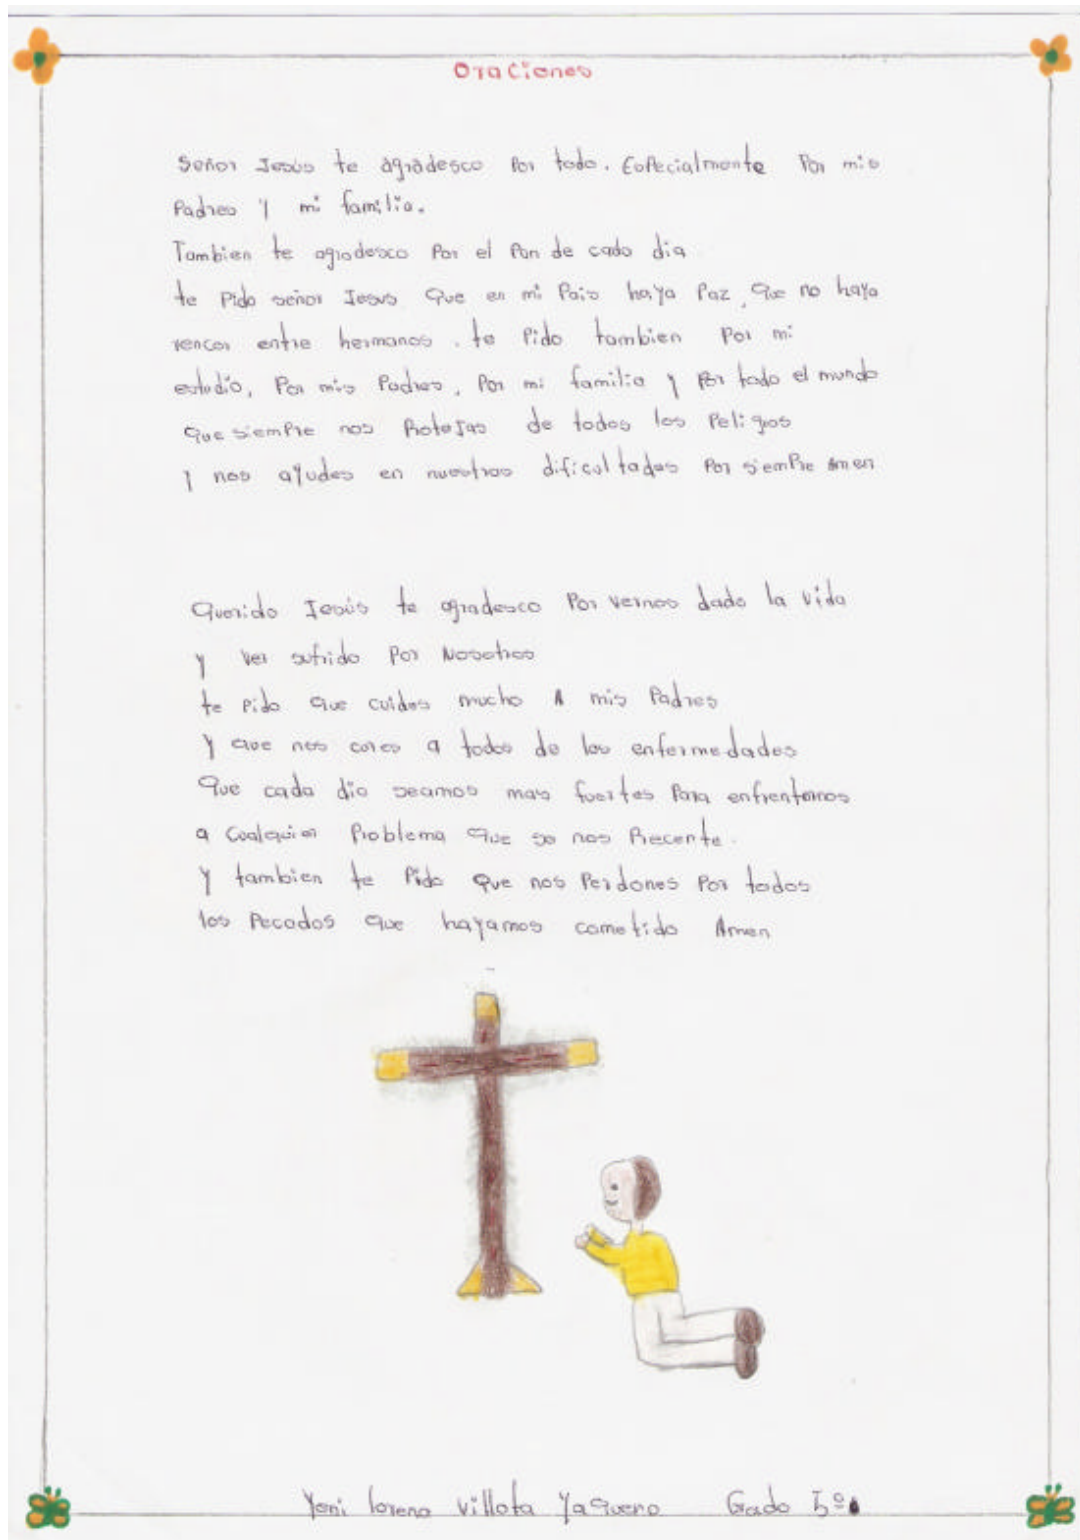 Oraciones
Señor Jesús te agradesco por todo. Especialmente por mis
Padres y mi familia.
Tambien te agradesco por el pan de cada dia
te pido señor Jesus que en mi Pais haya Paz, que no haya
rencor entre hermanos. te pido tambien por mi
estudio, por mis Padres, por mi familia y por todo el mundo
que siempre nos protejas de todos los peligros
y nos ayudes en nuestras dificultades por siempre amen
Querido Jesús te agradesco por vernos dado la vida
y ver sufrido por Nosotros
te pido que cuides mucho A mis Padres
y que nos cures a todos de las enfermedades
que cada dia seamos mas fuertes para enfrentarnos
a cualquier problema que se nos precente.
y tambien te pido que nos perdones por todos
los pecados que hayamos cometido Amen
Yeni lorena villota Yaqueno Grado 5º